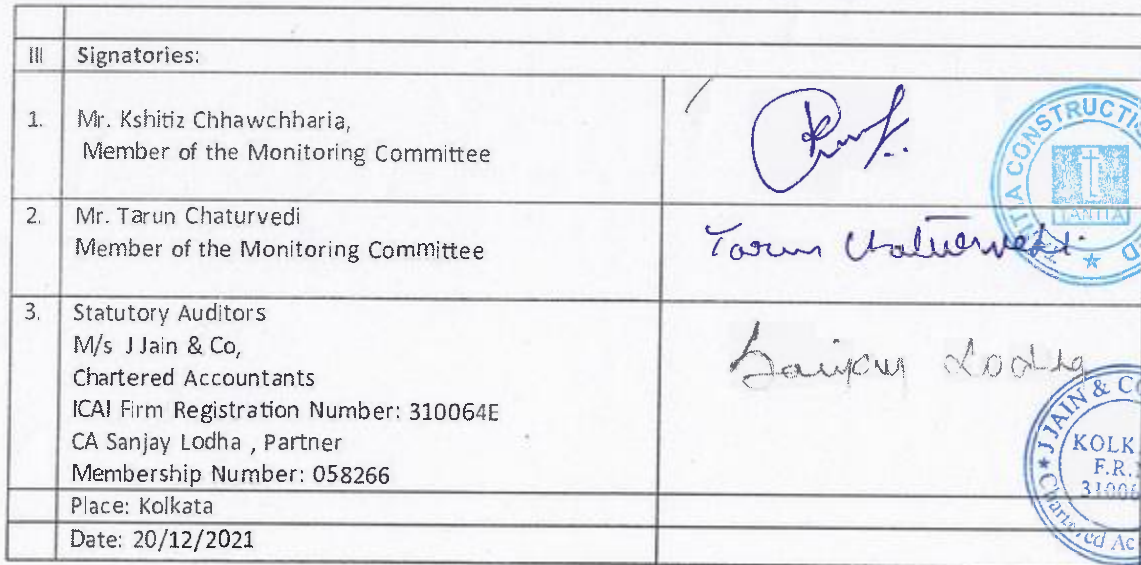 III Signatories:
1. Mr. Kshitiz Chhawchharia,
Member of the Monitoring Committee
2. Mr. Tarun Chaturvedi
Member of the Monitoring Committee
Tarun Chaturvedi
3. Statutory Auditors
M/s J Jain & Co,
Chartered Accountants
ICAI Firm Registration Number: 310064E
CA Sanjay Lodha , Partner
Membership Number: 058266
Sanjay Lodha
Place: Kolkata
Date: 20/12/2021
CONSTRUCTI
TANTIA
J JAIN & CO
KOLK
F.R.
31006
Chartered Ac